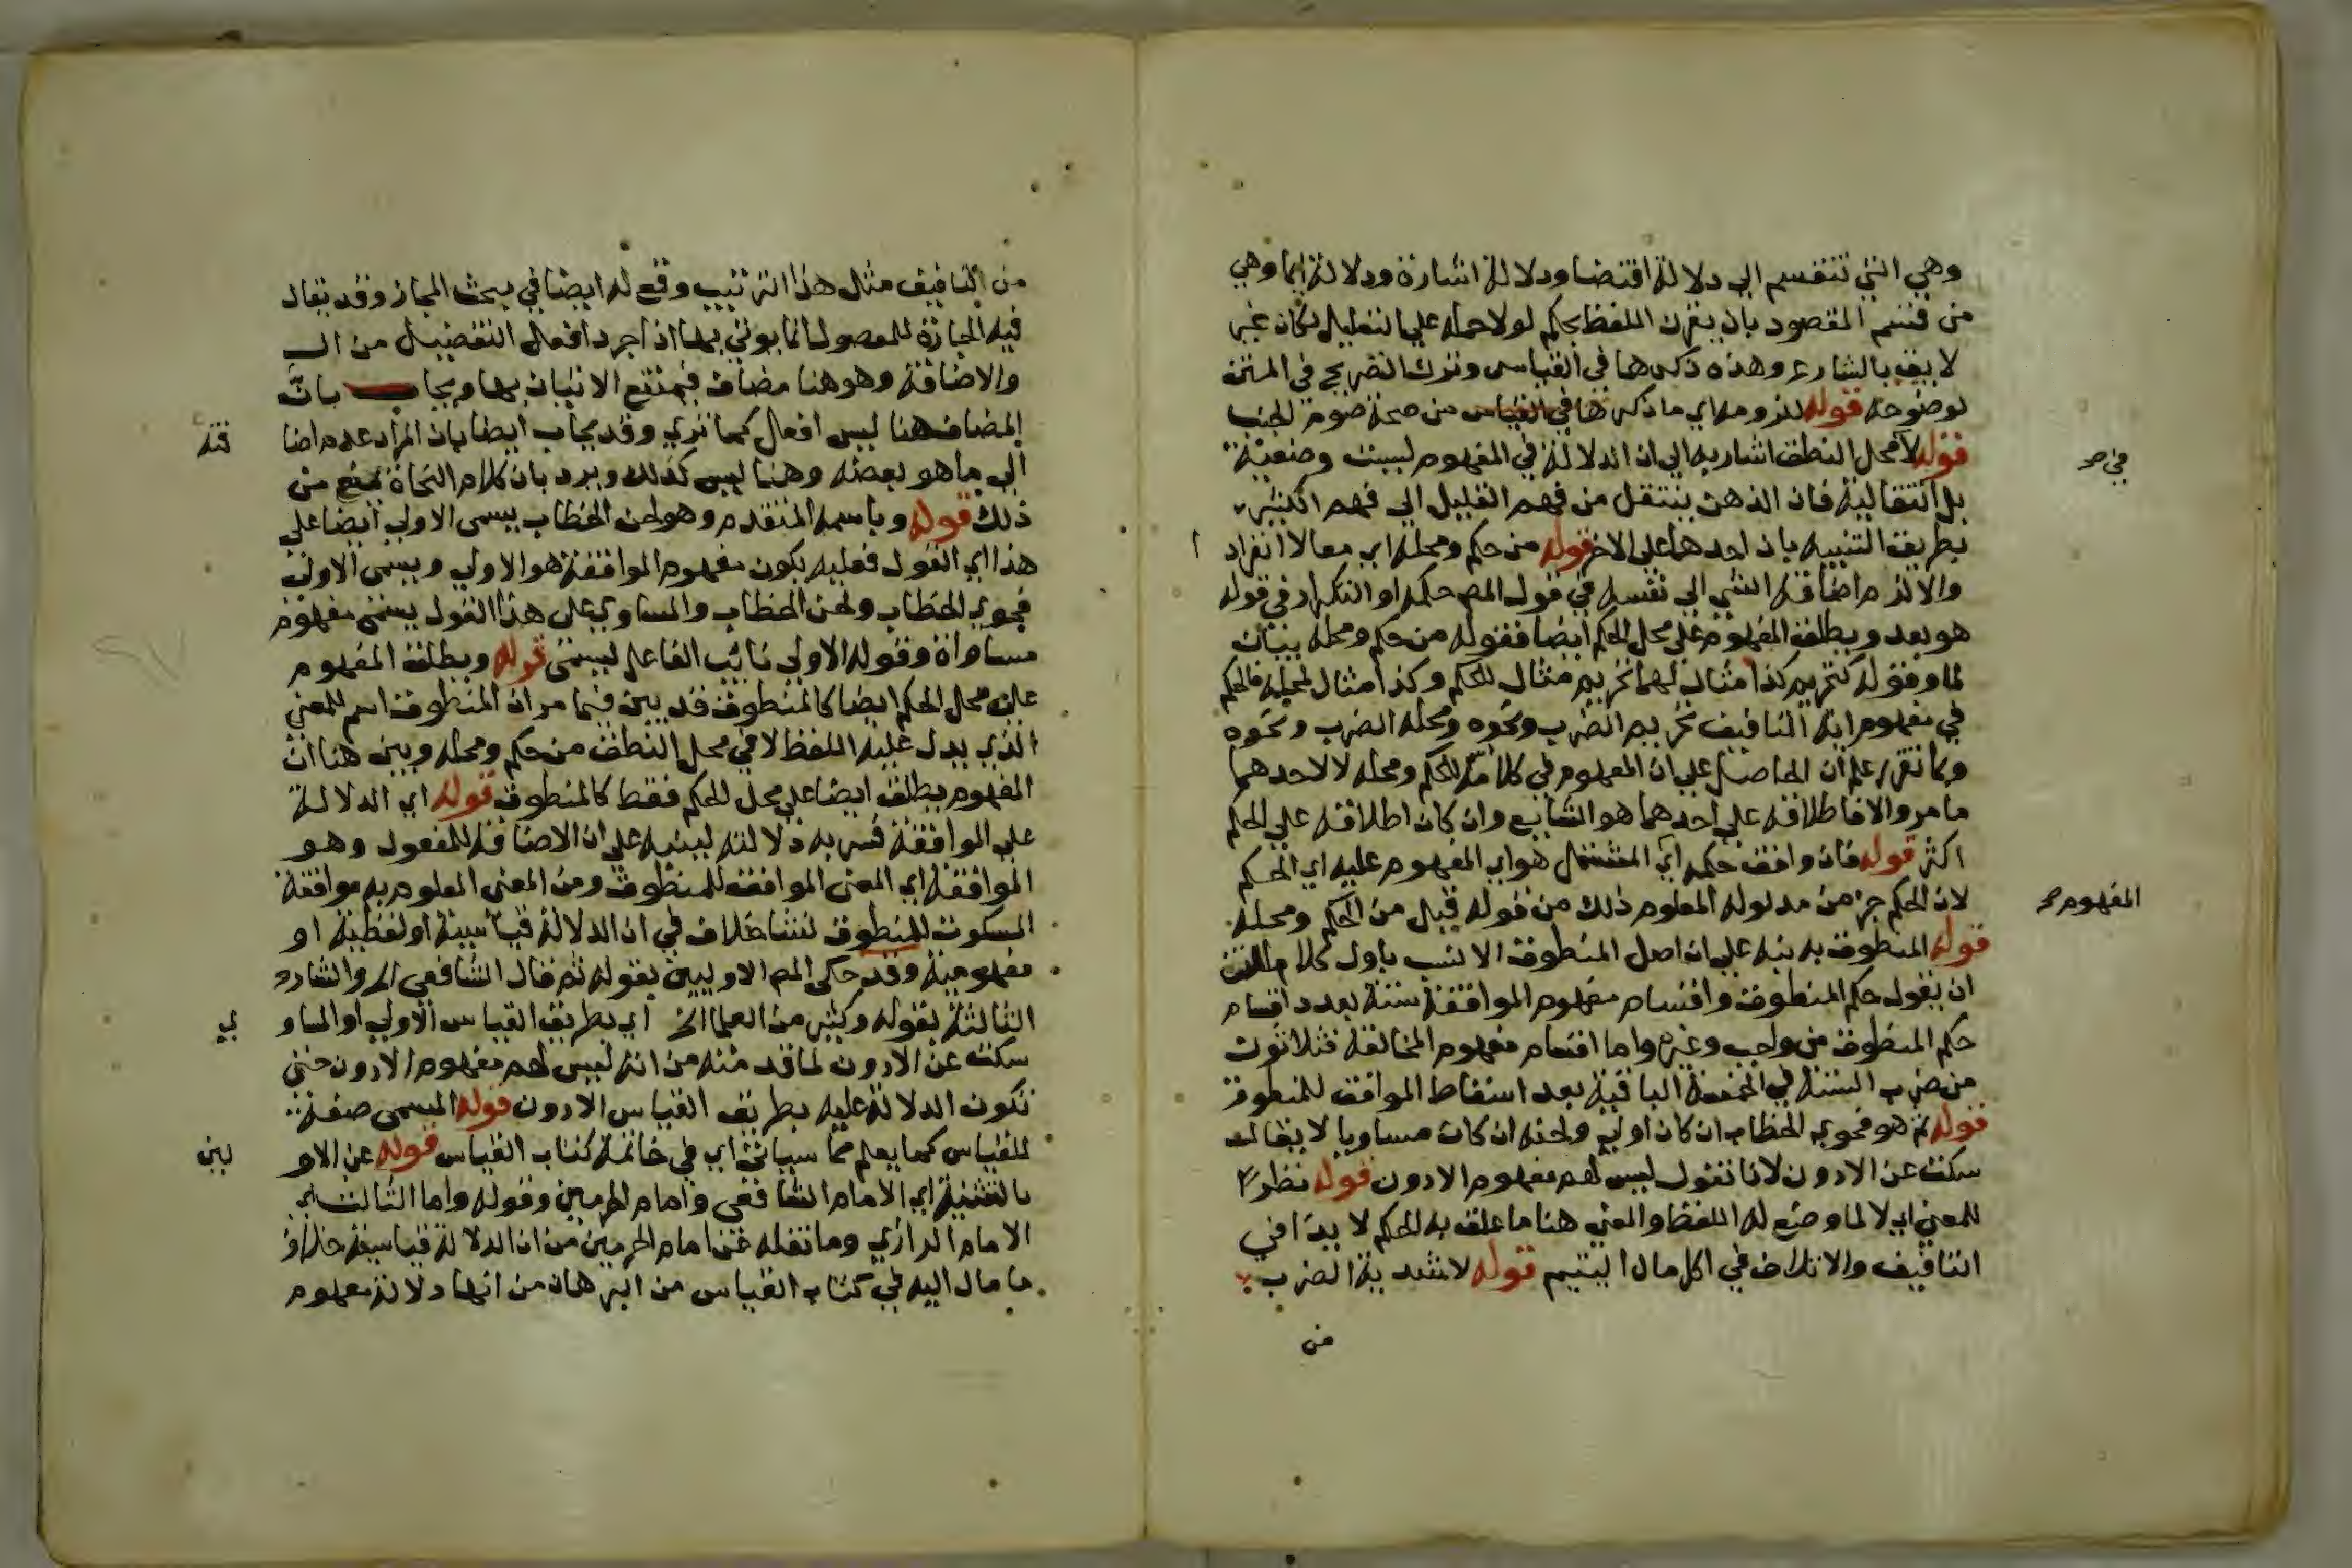 وهي التي تنقسم الي دلالة اقتضا ودلالة اشارة ودلالة ايما وهي
من قسم المقصود بان يقرن اللفظ بحكم لولا حمله علي التعليل لكان غير
لايق بالشارع وهذه ذكرها في القياس وترك التصريح في المتن
لوضوحه قوله للزومه اي ما ذكرها في القياس من صحة صوم الجنب
قوله لا محل النطق اشار به الي ان الدلالة في المفهوم ليست وضعية
بل انتقالية فان الذهن ينتقل من فهم القليل الي فهم الكثير
بطريق التنبيه بان احدهما علي الاخر قوله من حكم ومحله اي معا لا انفراد
ا
والا لزم اضافة الشي الي نفسه في قول المص حكمه او التكرار في قوله
هو بعد ويطلق المفهوم علي محل الحكم ايضا فقوله من حكم ومحله بيان
لما وقوله كتحريم كذا مثال لهما تحريم مثال للحكم وكذا مثال لمحله فالحكم
في مفهوم اية التافيف تحريم الضرب ونحوه ومحله الضرب ونحوه
وبما تقرر علم ان الحاصل علي ان المفهوم في كلامه للحكم ومحله لا لاحدهما
ما مر والا فاطلاقه علي احدهما هو الشايع وان كان اطلاقه علي الحكم
اكثر قوله فان وافق حكمه اي المشتمل هو اي المفهوم عليه اي الحكم
لان الحكم جز من مدلوله المعلوم ذلك من قوله قبل من الحكم ومحله
قوله المنطوق به نبه علي ان اصل المنطوق الانسب باول كلام المتن
ان يقول حكم المنطوق واقسام مفهوم الموافقة ستة بعدد اقسام
حكم المنطوق من واجب وغيره واما اقسام مفهوم المخالفة فثلاثون
من ضرب الستة في الخمسة الباقية بعد اسقاط الموافق للمنطوق
قوله ثم هو فحوي الخطاب ان كان اولي ولحنه ان كان مساويا لا يقال
سكت عن الادون لانا نقول ليس لهم مفهوم الادون قوله نظرا
للمعني اي لا لما وضع له اللفظ والمعني هنا ما علق به الحكم لا يدا في
التافيف والاتلاف في اكل مال اليتيم قوله لاشدية الضرب
من
في صح
المفهوم صح
من التافيف مثل هذا الترتيب وقع له ايضا في بحث المجاز وقد يقال
فيه الجارة للمفصول انما يوتي بها ان جرد افعل التفضيل من ال
والاضافة وهو هنا مضاف فيمتنع الاتيان بها ويجاب بان
المضاف هنا ليس افعل كما تري وقد يجاب ايضا بان المراد عدم اضا
فته
الي ما هو بعضه وهنا ليس كذلك ويرد بان كلام النحاة يمنع من
ذلك قوله وباسمه المتقدم وهو لحن الخطاب يسمي الاولي ايضا علي
هذا اي القول فعليه يكون مفهوم الموافقة هو الاولي ويسمي الاولي
فحوي الخطاب ولحن الخطاب والمساوي علي هذا القول يسمي مفهوم
مساواة وقوله الاولي نائب الفاعل ليسمي قوله ويطلق المفهوم
علي محل الحكم ايضا كالمنطوق قد بين فيما مر ان المنطوق اسم للمعني
الذي يدل عليه اللفظ لا في محل النطق من حكم ومحله وبين هنا ان
المفهوم يطلق ايضا علي محل الحكم فقط كالمنطوق قوله اي الدلالة
علي الموافقة فسر به دلالته لينبه علي ان الاضافة للمفعول وهو
الموافقة اي المعني الموافق للمنطوق ومن المعني المعلوم به موافقة
المسكوت للمنطوق نشا خلاف في ان الدلالة قياسية او لفظية او
مفهومية وقد حكي المص الاوليين بقوله ثم قال الشافعي الي والشار
الثالثة بقوله وكثير من العلما الخ اي بطريق القياس الاولي او المساو
ي
سكت عن الادون لما قدمته من انه ليس لهم مفهوم الادون حتي
تكون الدلالة عليه بطريق القياس الادون قوله المسمي صفة
للقياس كما يعلم مما سياتي اي في خاتمة كتاب القياس قوله عن الاو
لين
بالتثنية اي الامام الشافعي وامام الحرمين وقوله واما الثالث اي
الامام الرازي وما نقله عن امام الحرمين من ان الدلالة قياسية خلاف
ما مال اليه في كتاب القياس من البرهان من انها دلالة مفهوم